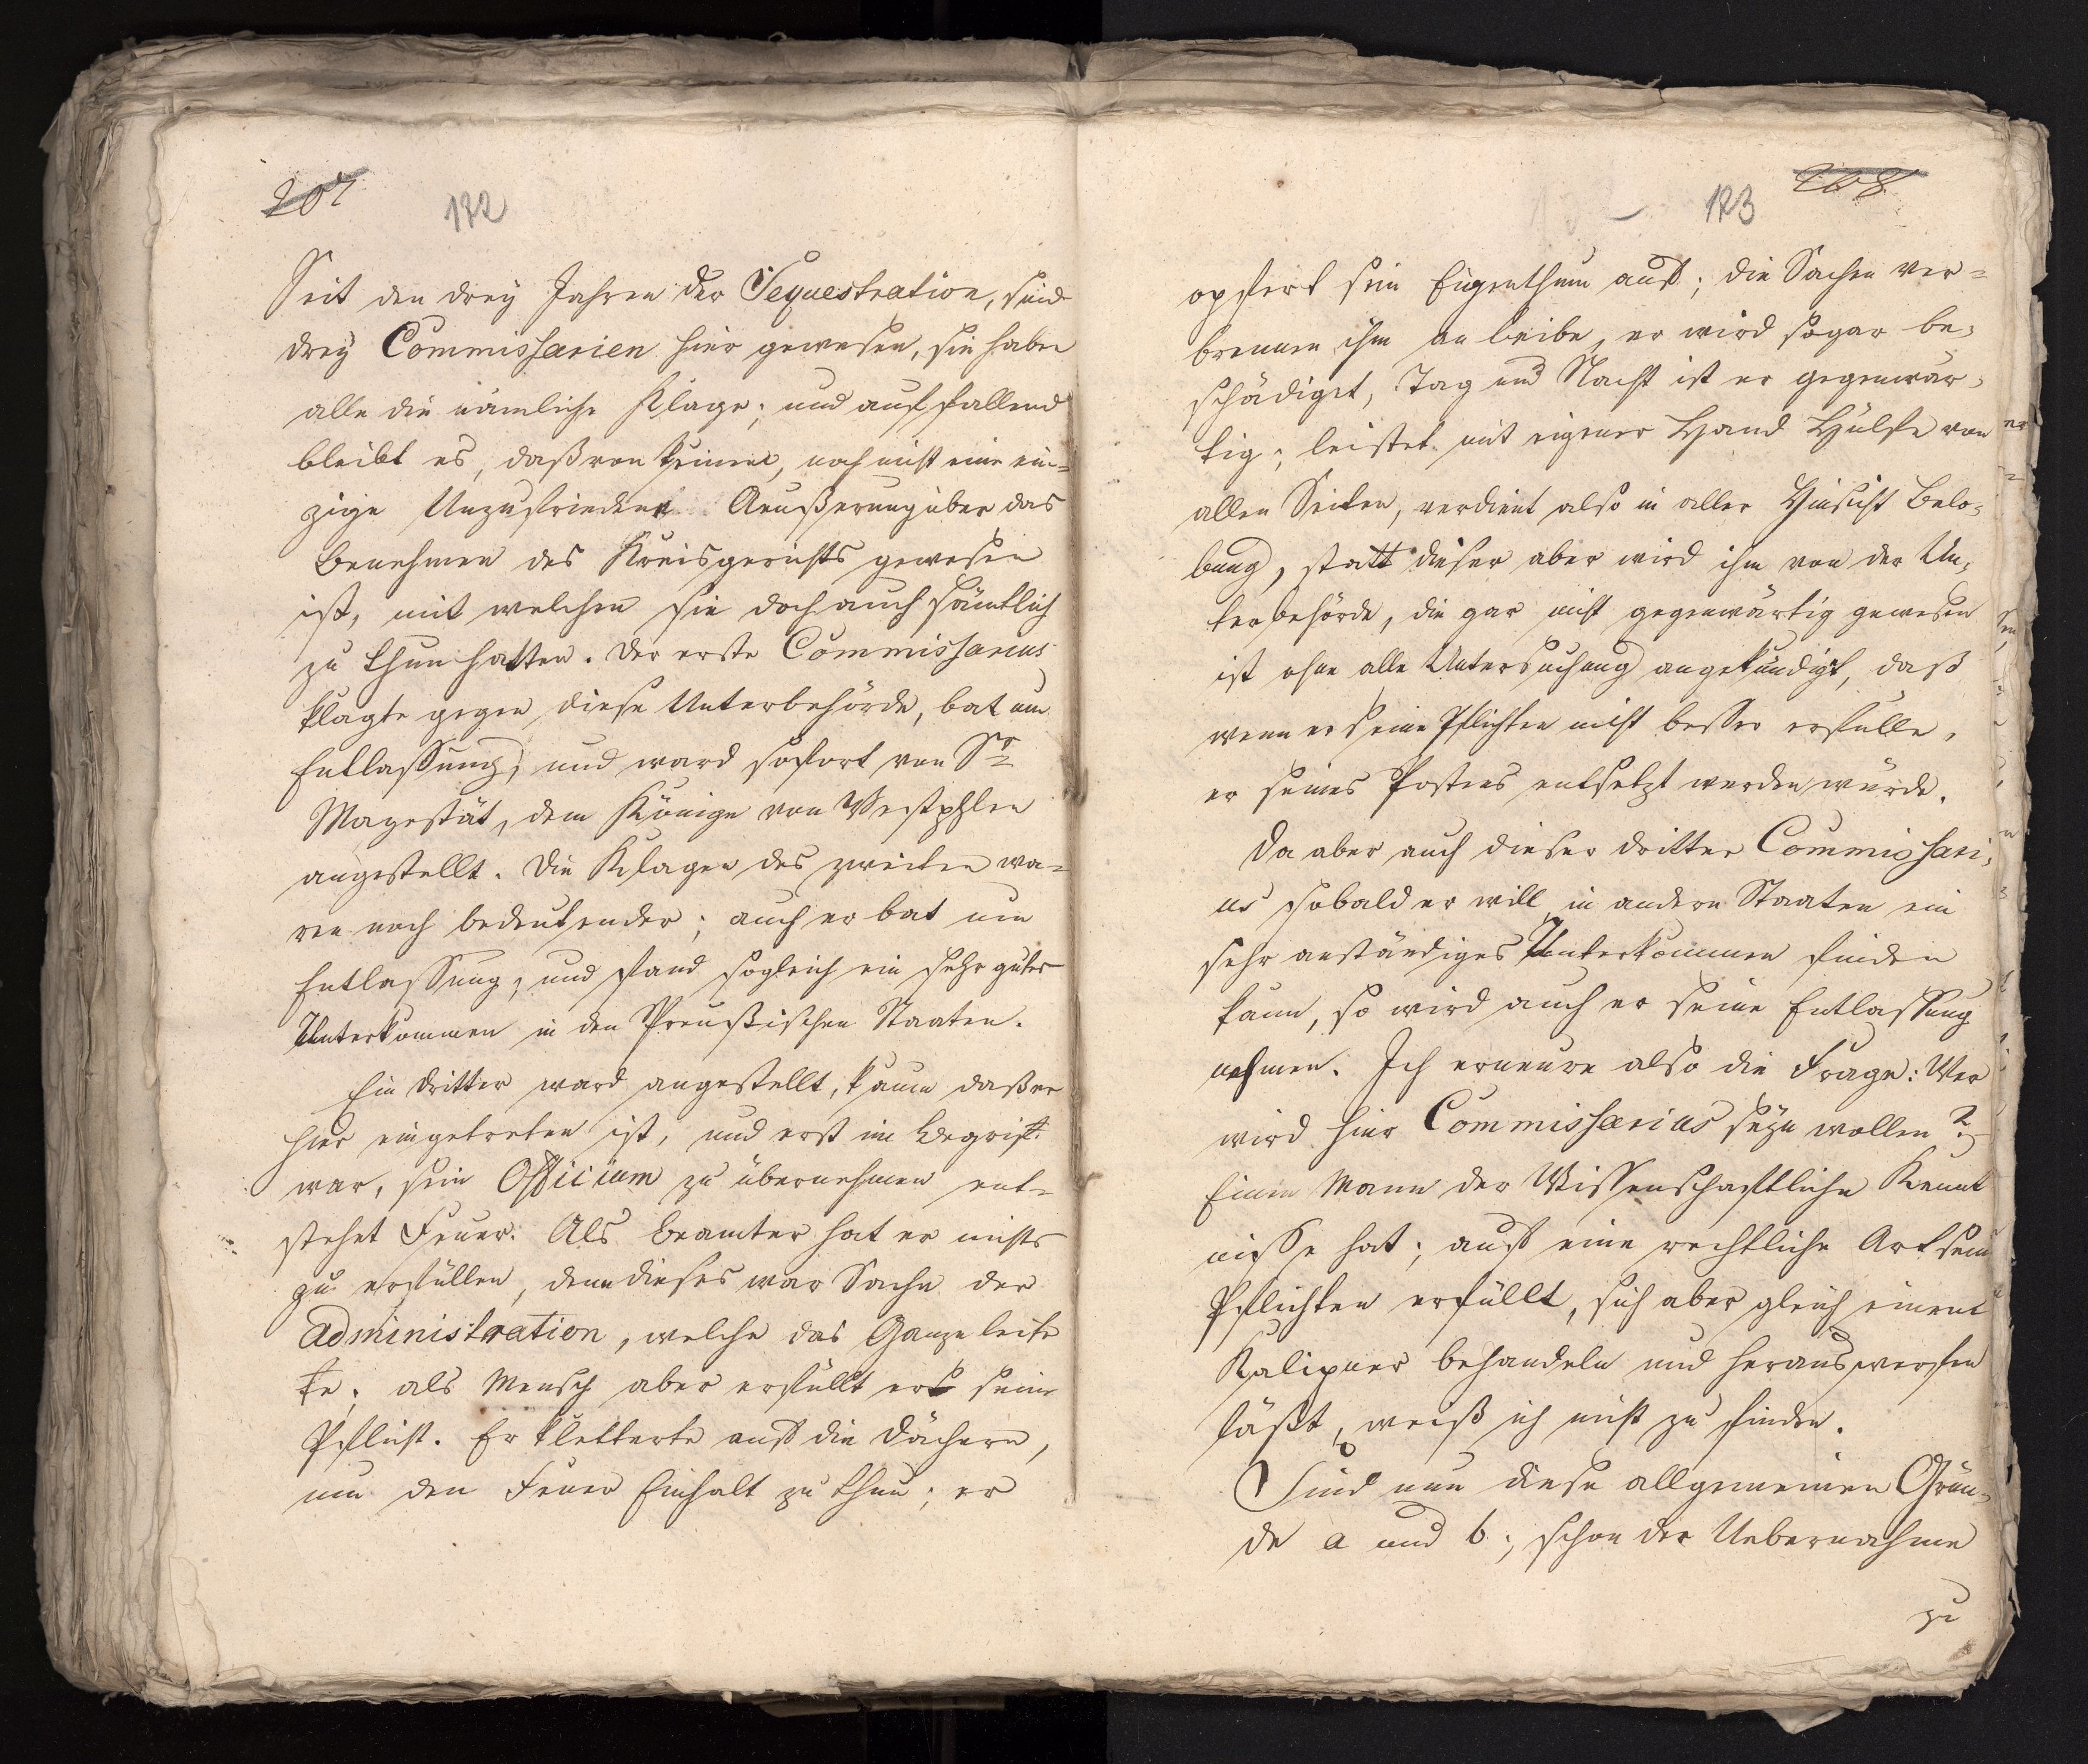 207
172
Seit den drey Jahren der Sequestration, sind
drey Commissarien hier gewesen, sie haben
alle die nämliche Klage; und auffallend
bleibt es, daß von keinem, noch nicht eine ein=
zige Unzufriedene Aeußerung über das
Benehmen des Kreisgerichts gewesen
ist, mit welchen sie doch auch sämtlich
zu thun hatten. Der erste Commissarius
klagte gegen diese Unterbehörde, bat um
Entlassung, und ward sofort von Sr
Mayestät, dem Könige von Westphlen
angestellt. Die Klagen des zweiten wa=
ren noch bedeutender; auch er bat um
Entlassung, und fand sogleich ein sehr gutes
Unterkommen in den Preußischen Staaten.
Ein dritter ward angestellt, kaum daß er
hier eingetreten ist, und erst im Begriff
war, sein Officium zu übernehmen ent=
stehet Feuer. Als Beamter hat er nichts
zu erfüllen, denn dieses war Sache der
Administration, welche das Ganze leite
te; als Mensch aber erfüllt er seine
Pflicht. Er kletterte auf die Dächern,
um den Feuer Einhalt zu thun; er
208
173
opfert sein Eigenthum auf; die Sachen ver=
brennen ihm am Leibe, er wird sogar be=
schädiget, Tag und Nacht ist er gegenwär=
tig; leistet mit eigener Hand Hülfe von
allen Seiten, verdient also in aller Hinsicht Belo=
bung, statt dieser aber wird ihm von der Un=
terbehörde, die gar nicht gegenwärtig gewesen
ist ohne alle Untersuchung angekündigt, daß
wenn er seine Pflichten nicht besser erfülle,
er seines Postens entsetzt werden würde.
Da aber auch dieser dritter Commissari=
us sobald er will in andern Staaten ein
sehr anständiges Unterkommen finden
kann, so wird auch er seine Entlassung
nehmen. Ich erneure also die Frage: Wer
wird hier Commissarius seyn wollen?
Einen Mann der Wissenschaftliche Kennt
nisse hat; auf eine rechtliche Art sein
Pflichten erfüllt, sich aber gleich einem
behandeln und herauswerfen
läßt, weiß ich nicht zu finden.
Sind nun diese allgemeinen Grün=
de a und b; schon der Uebernahme
zu